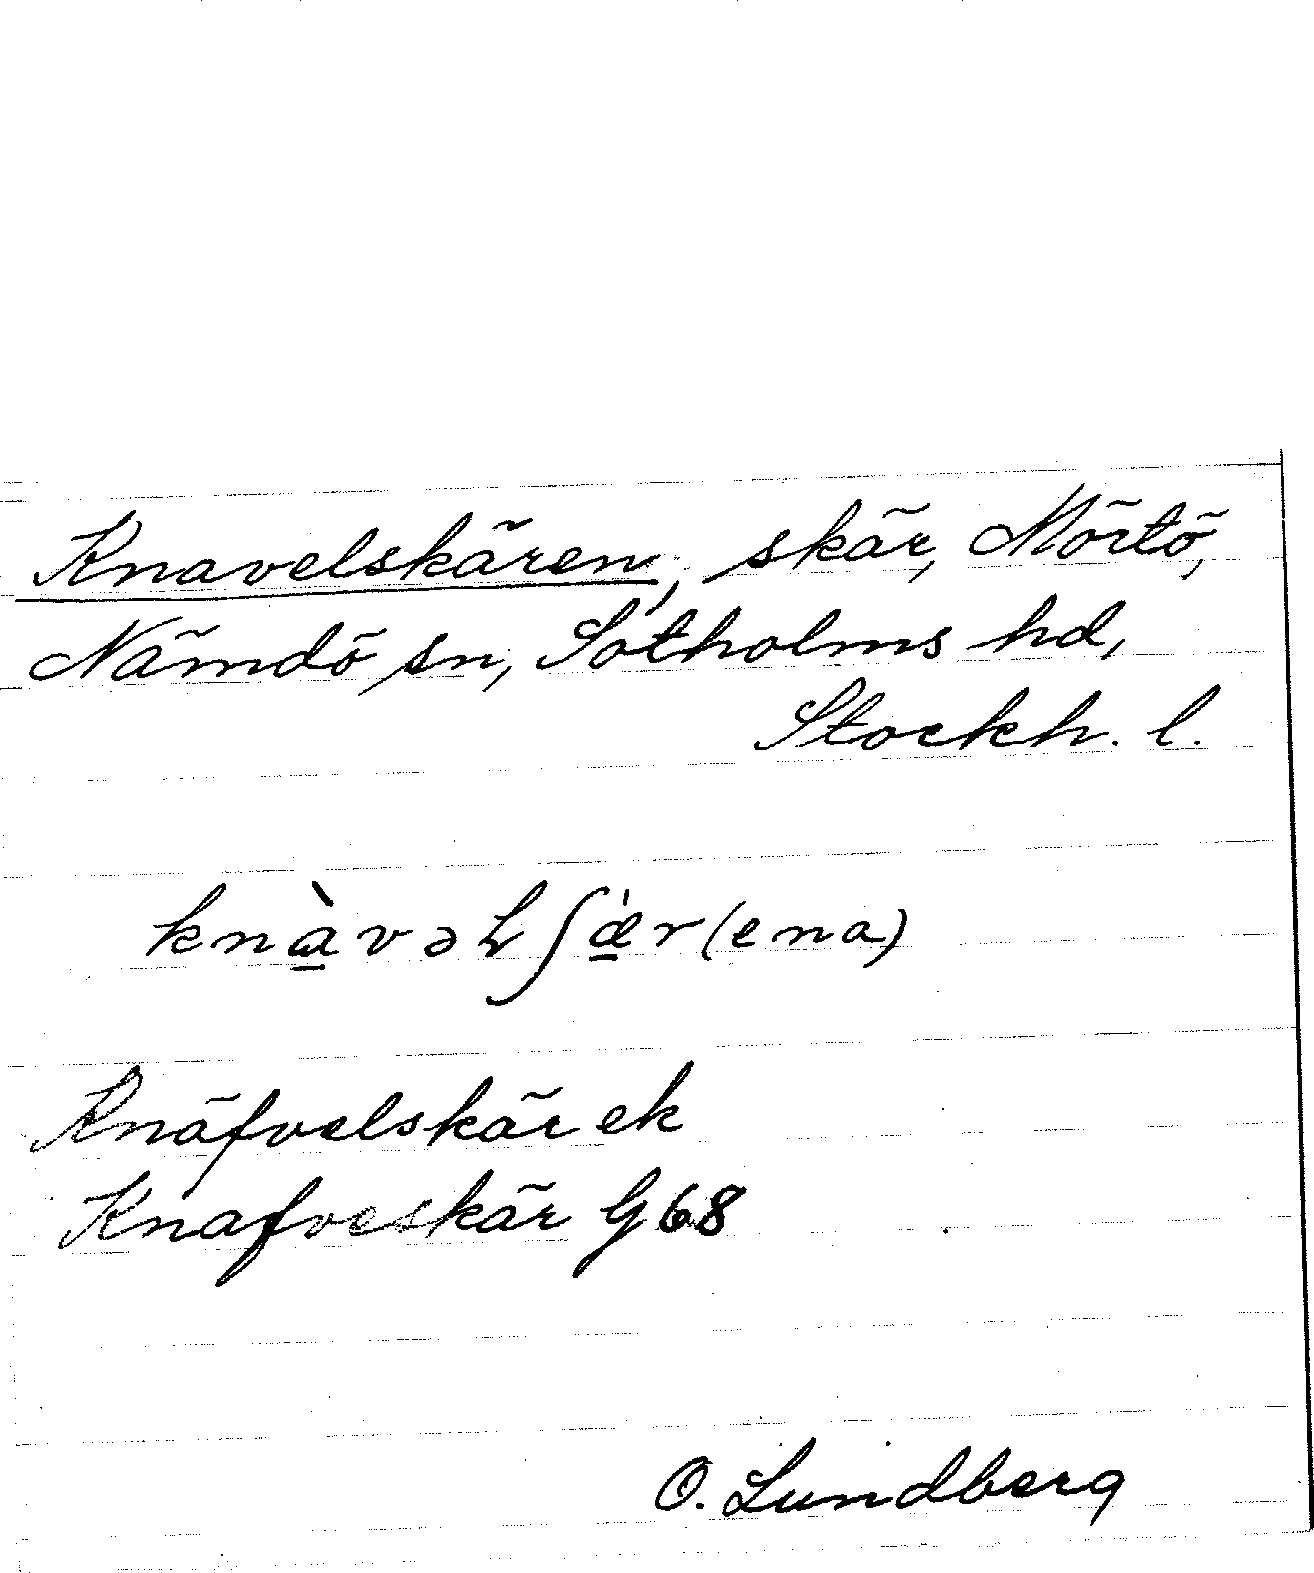 Knavelskären, skär, Mörtö,
Nämdö sn, Sotholms hd,
Stockh. l.
knàvəɫʃæ̀r(ena)
Knäfvelskär ek
Knafveskär G68
O. Lundberg